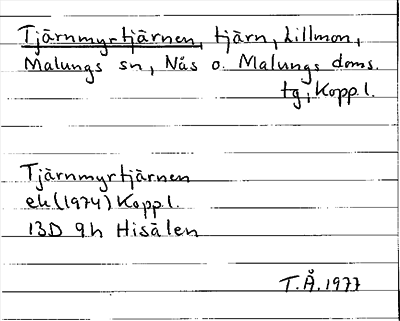 Tjärnmyrtjärnen, tjärn, Lillmon,
Malungs sn, Nås o. Malungs doms.
tg, Kopp.l.
Tjärnmyrtjärnen
ek (1974) Kopp.l.
13D 9h Hisålen
T.Å. 1977